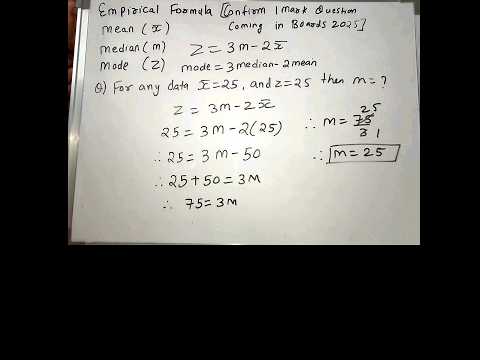 Empirical Formula [Confirm 1 Mark Question
Coming in Boards 2025]
mean (x̄)
median (m) Z = 3m - 2x̄
mode (Z) mode = 3median - 2mean
Q) For any data x̄=25, and z=25 then m=?
Z = 3m - 2x̄
25 = 3m - 2(25)
∴ 25 = 3m - 50
∴ 25 + 50 = 3m
∴ 75 = 3m
25
∴ m = 75
3 1
∴ m = 25